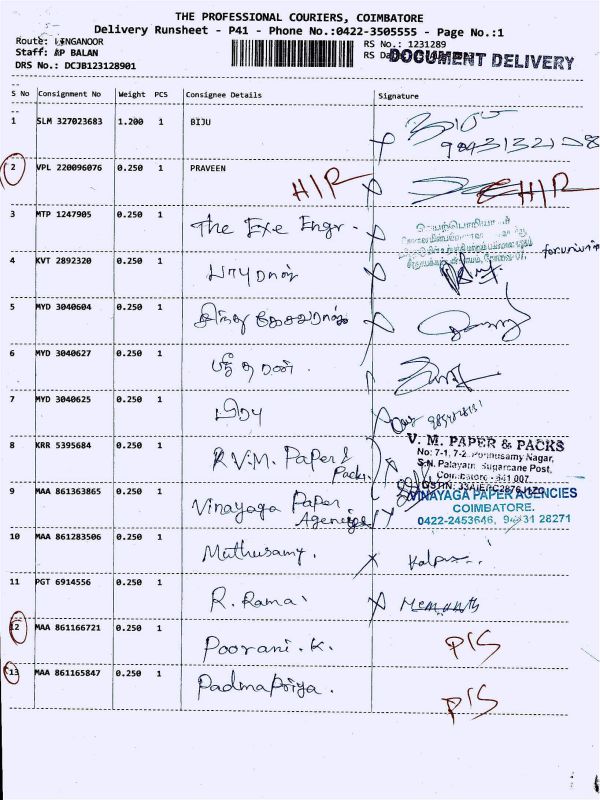 THE PROFESSIONAL COURIERS, COIMBATORE
Delivery Runsheet - P41 - Phone No.:0422-3505555 - Page No.:1
Route: LINGANOOR RS No.: 1231289
Staff: RP BALAN RS Da DOCUMENT DELIVERY
DRS No.: DCJB123128901
S No Consignment No Weight PCS Consignee Details Signature
1 SLM 327023683 1.200 1 BIJU
2 VPL 220096076 0.250 1 PRAVEEN H/R H/R
3 MTP 1247905 0.250 1 The Exe Engr.
4 KVT 2892320 0.250 1
5 MYD 3040604 0.250 1
6 MYD 3040627 0.250 1 ஸ்ரீதரன்.
7 MYD 3040625 0.250 1 பிரபு
8 KRR 5395684 0.250 1 R.V.M. Paper & Packs
V. M. PAPER & PACKS
No: 7-1, 7-2, Ponnusamy Nagar,
S.N. Palayam, Sugarcane Post,
Coimbatore - 641 007
9 MAA 861363865 0.250 1 Vinayaga Paper Agencies
VINAYAGA PAPER AGENCIES
COIMBATORE.
0422-2453646, 94431 28271
10 MAA 861283506 0.250 1 Muthusamy.
11 PGT 6914556 0.250 1 R. Ramai
12 MAA 861166721 0.250 1 Poorani. K. P/S
13 MAA 861165847 0.250 1 Padmapriya. P/S